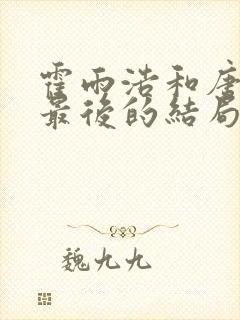 霍雨浩和唐
最後的結局
魏九九